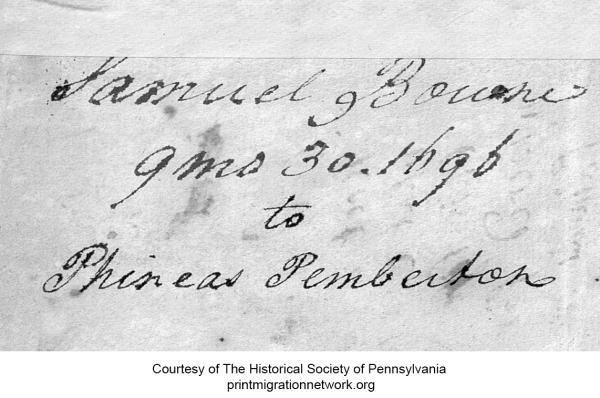 Samuel Bowne
9mo 30. 1696
to
Phineas Pemberton
Courtesy of The Historical Society of Pennsylvania
printmigrationnetwork.org